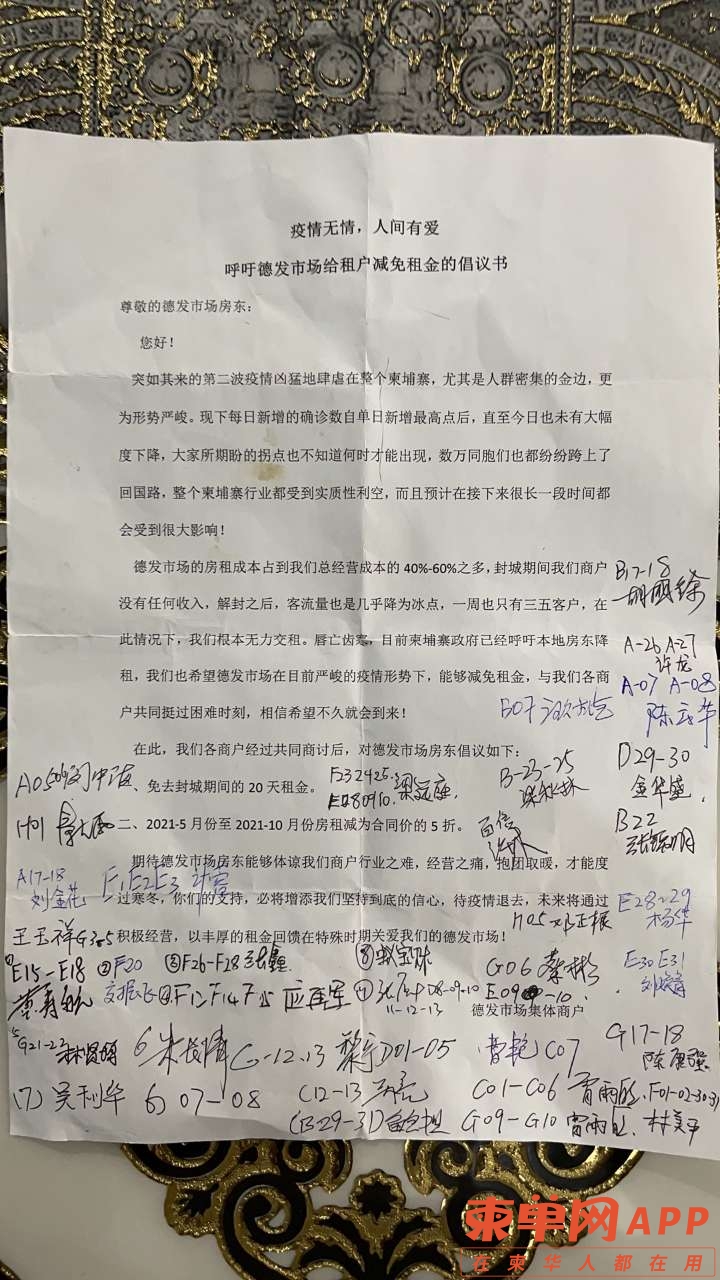 疫情无情，人间有爱
呼吁德发市场给租户减免租金的倡议书
尊敬的德发市场房东：
您好！
突如其来的第二波疫情凶猛地肆虐在整个柬埔寨，尤其是人群密集的金边，更
为形势严峻。现下每日新增的确诊数自单日新增最高点后，直至今日也未有大幅
度下降，大家所期盼的拐点也不知道何时才能出现，数万同胞们也都纷纷跨上了
回国路，整个柬埔寨行业都受到实质性利空，而且预计在接下来很长一段时间都
会受到很大影响！
德发市场的房租成本占到我们总经营成本的 40%-60%之多，封城期间我们商户
没有任何收入，解封之后，客流量也是几乎降为冰点，一周也只有三五客户，在
此情况下，我们根本无力交租。唇亡齿寒，目前柬埔寨政府已经呼吁本地房东降
租，我们也希望德发市场在目前严峻的疫情形势下，能够减免租金，与我们各商
户共同挺过困难时刻，相信希望不久就会到来！
在此，我们各商户经过共同商讨后，对德发市场房东倡议如下：
、免去封城期间的 20 天租金。
二、2021-5 月份至 2021-10 月份房租减为合同价的 5 折。
期待德发市场房东能够体谅我们商户行业之难，经营之痛，抱团取暖，才能度
过寒冬，你们的支持，必将增添我们坚持到底的信心，待疫情退去，未来将通过
积极经营，以丰厚的租金回馈在特殊时期关爱我们的德发市场！
德发市场集体商户
B17-18
A-26 A-27
许龙
A-07 A-08
B07
D29-30
金华盛
B-23-25
B22
H01
A17-18
刘金花
E1E2E3
E28-29
杨华
王玉祥
E15-E18 ②F20 ③F26-F28
G06 E30 E31
④F12F14F15
D8-09-10
11-12-13
E09 -10
G21-23
6 朱长清 G-12.13
D01-05
C07
G17-18
(7) 吴利华 6) 07-08
C12-13
C01-C06 F01-02-30-31
(B29-31)
G09-G10 林美平
柬单网APP
在柬华人都在用